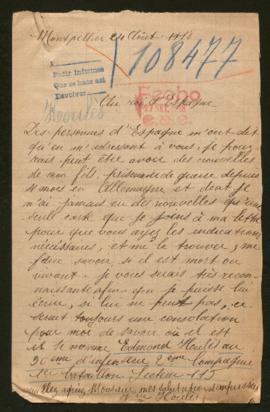 Montpellier 24 Août 1918
108477
A
Pedir informes
Que se hace así
Devolver
Fecho
Au roi d'Espagne
Des personnes d'Espagne m'ont dit
qu'en m'adressant à vous, je pour
rais peut être avoir des nouvelles
de mon fils, prisonnier de guerre depuis
mois en Allemagne et dont je
n'ai jamais eu des nouvelles qu'une
seule carte que je joins à ma lettre
pour que vous ayez les indications
nécessaires, et me le trouver, me
faire savoir si il est mort ou
vivant. je vous serais très recon-
naissante afin que je puisse lui
écrire, si lui ne peut pas, ce
serait toujours une consolation
pour moi de savoir où il est
et se nomme Edmond
d'infanterie 2 eme Compagnie
1er bataillon Section 115
Monsieur, mes